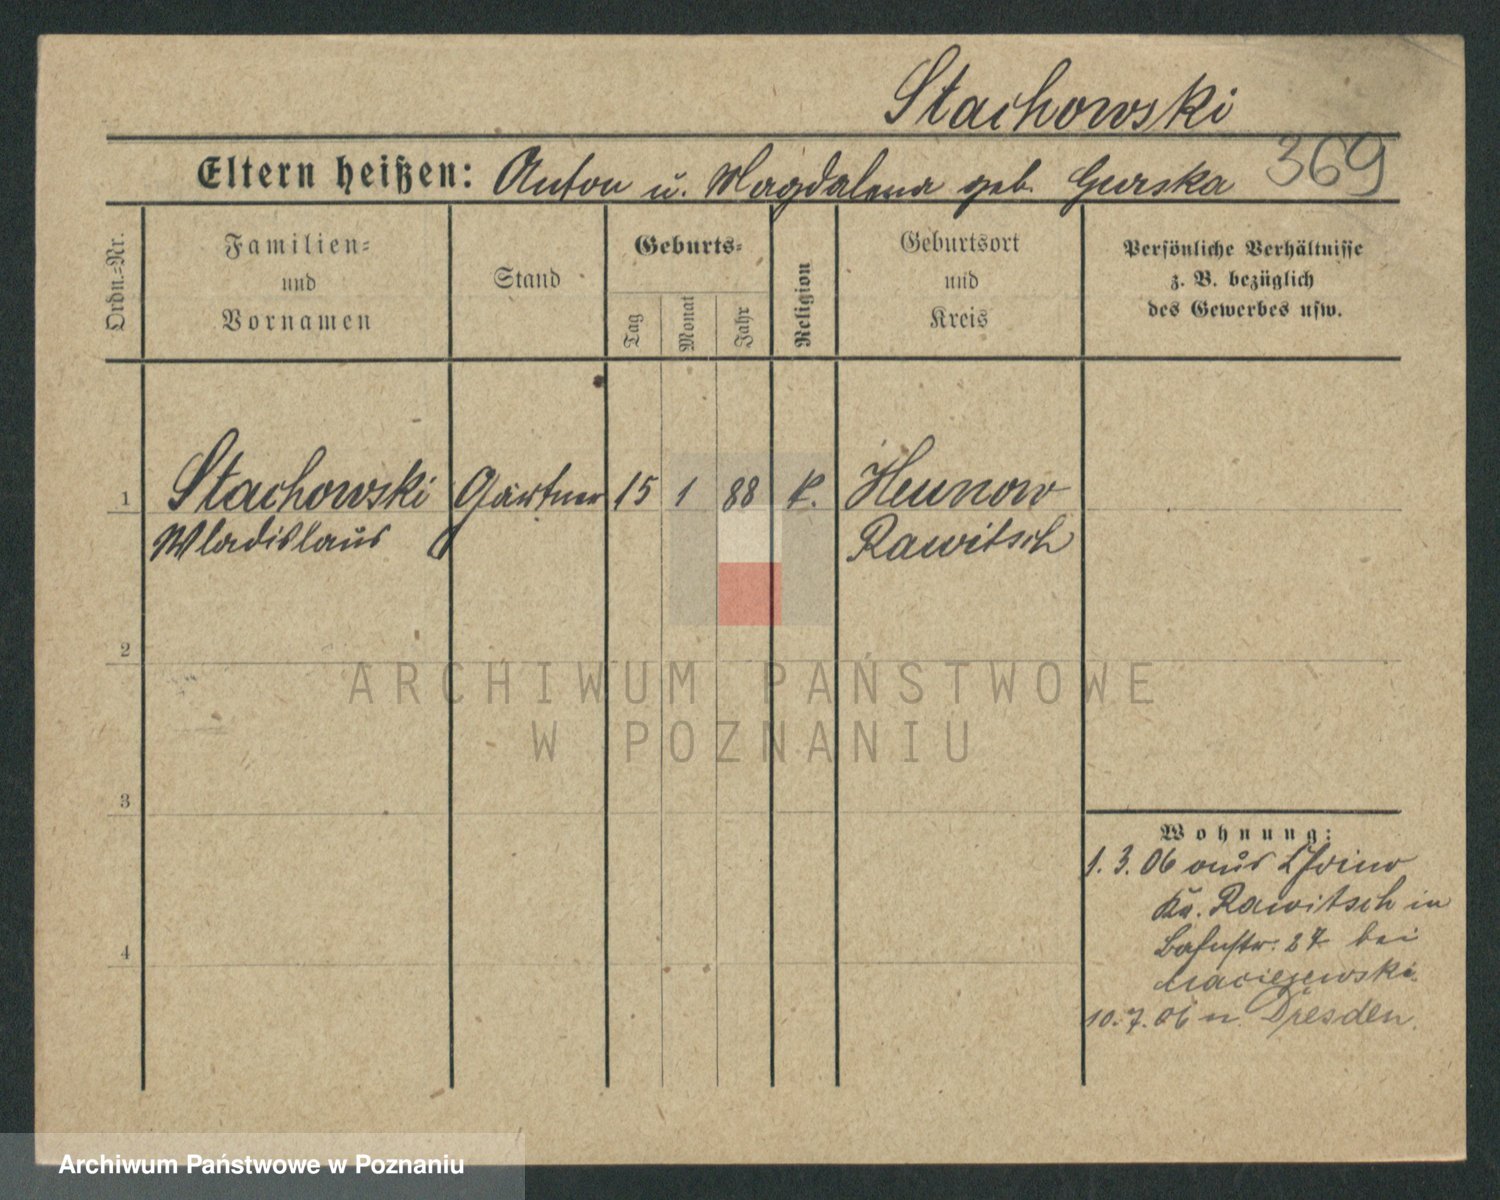 Stachowski
369
Eltern heißen: Anton u. Magdalena geb. Gurska
Ordn.=Nr.
Familien=
und
Vornamen
Stand
Geburts=
Tag
Monat
Jahr
Religion
Geburtsort
und
Kreis
Persönliche Verhältnisse
z. B. bezüglich
des Gewerbes usw.
1 Stachowski Gärtner 15 1 88 k. Heunow
Wladislaus Rawitsch
2
ARCHIWUM PAŃSTWOWE
W POZNANIU
3
Wohnung:
1. 3. 06 aus
Kr. Rawitsch in
4
Bahnstr. 27 bei
Maciejewski.
10. 7. 06 n. Dresden.
Archiwum Państwowe w Poznaniu